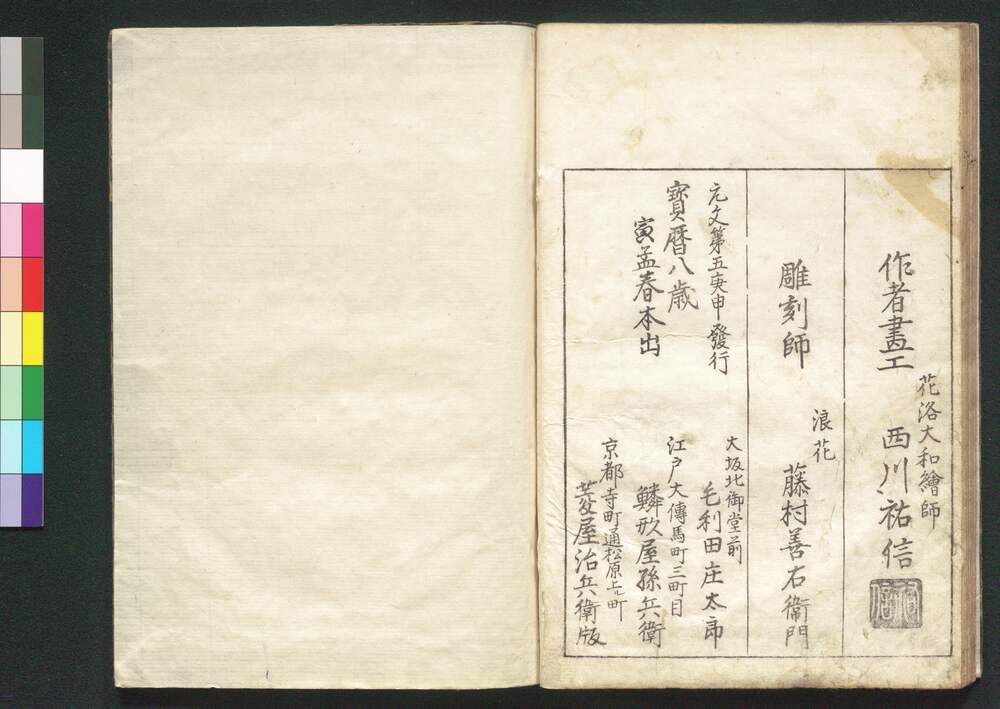 作者畫工
花洛大和繪師
西川祐信
祐信
雕刻師
浪花
藤村善右衞門
元文第五庚申發行
寳暦八歳
寅孟春本出
大坂北御堂前
毛利田庄太郎
江戸大傳馬町三町目
鱗形屋孫兵衞
京都寺町通松原上ル町
菱屋治兵衞版